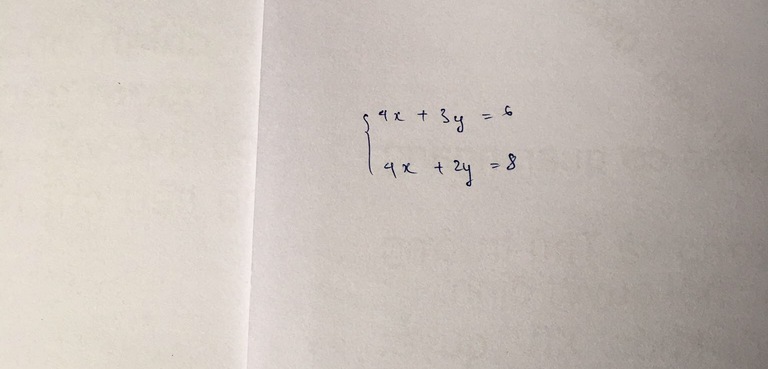 4x + 3y = 6
4x + 2y = 8